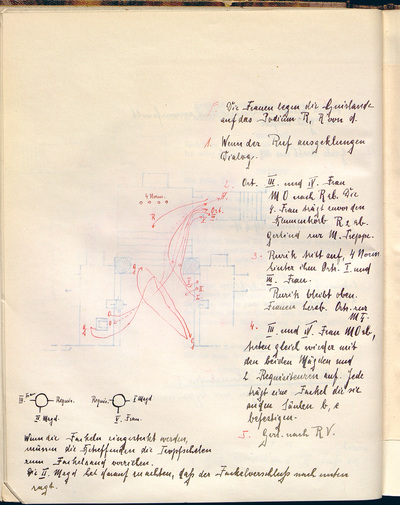 Die Frauen legen die Guirlande
auf das Podium R, R von d.
1. Wenn der Ruf ausgeklungen
Dialog.
2. Ort. III. und IV. Frau
M O nach R ab. Die
4. Frau trägt zuvor den
Blumenkorb R 2 ab.
Gerlind zur M. Treppe.
3. Rurik tritt auf, 4 Norm.
hinter ihm Ort. I. und
III. Frau.
Rurik bleibt oben.
Frauen herab. Ort. zur
M
4. III. und IV. Frau M O ab,
treten gleich wieder mit
den beiden Mägden und
2 Requisiteuren auf. Jede
trägt eine Fackel die sie
an den Säulen b, e
befestigen.
5. Gerl. nach R V.
4 Norm.
III Requis.
II Magd.
Requis. I Magd
Frau.
Wenn die Fackeln eingesteckt werden,
müssen die Betreffenden die Tropfschalen
zum Fackelrand vorziehen.
Die II. Magd hat darauf zu achten, daß der Fackelverschluß nach unten
ragt.